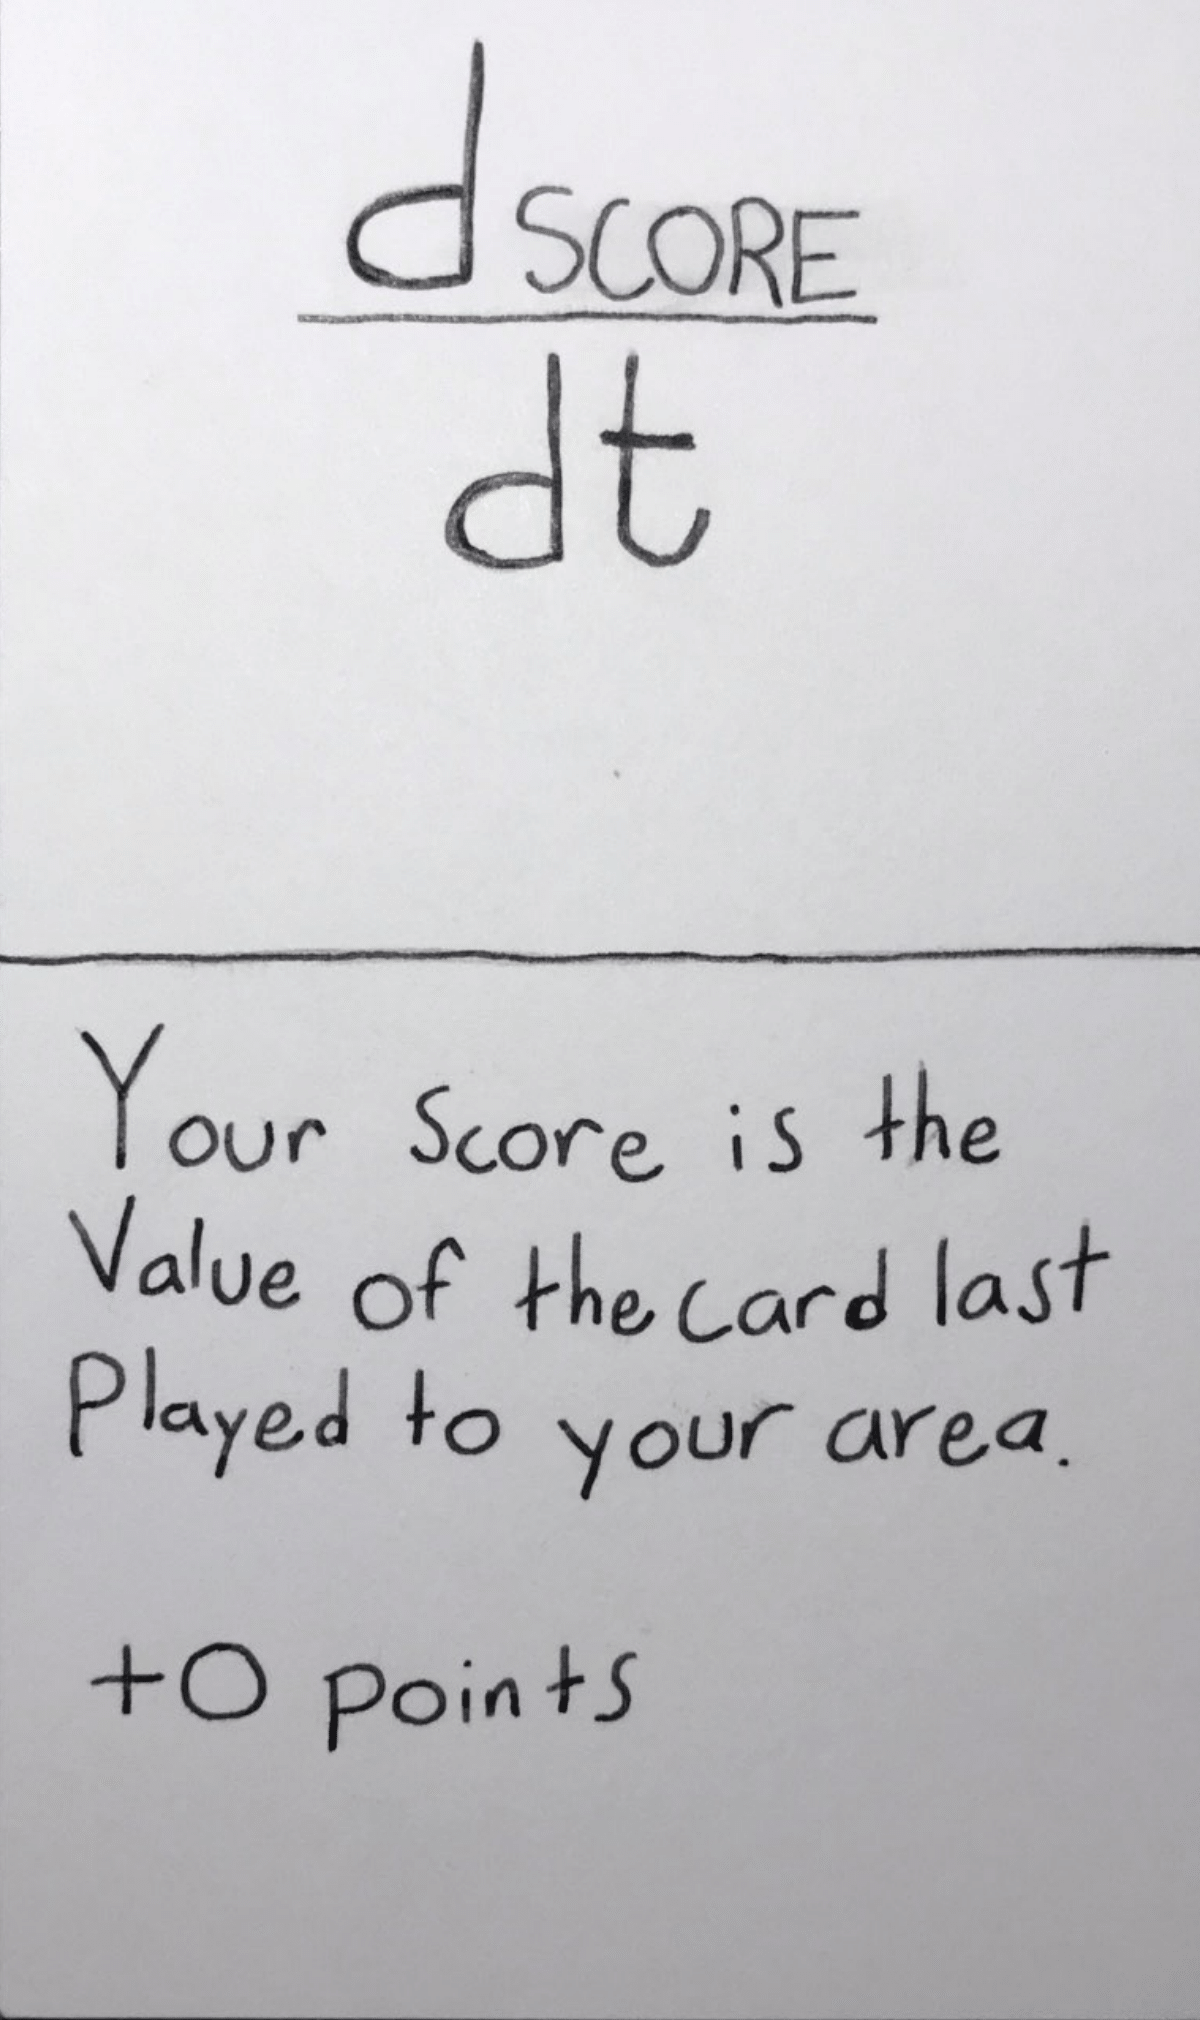 d SCORE
dt
Your Score is the
Value of the card last
Played to your area.
+0 points